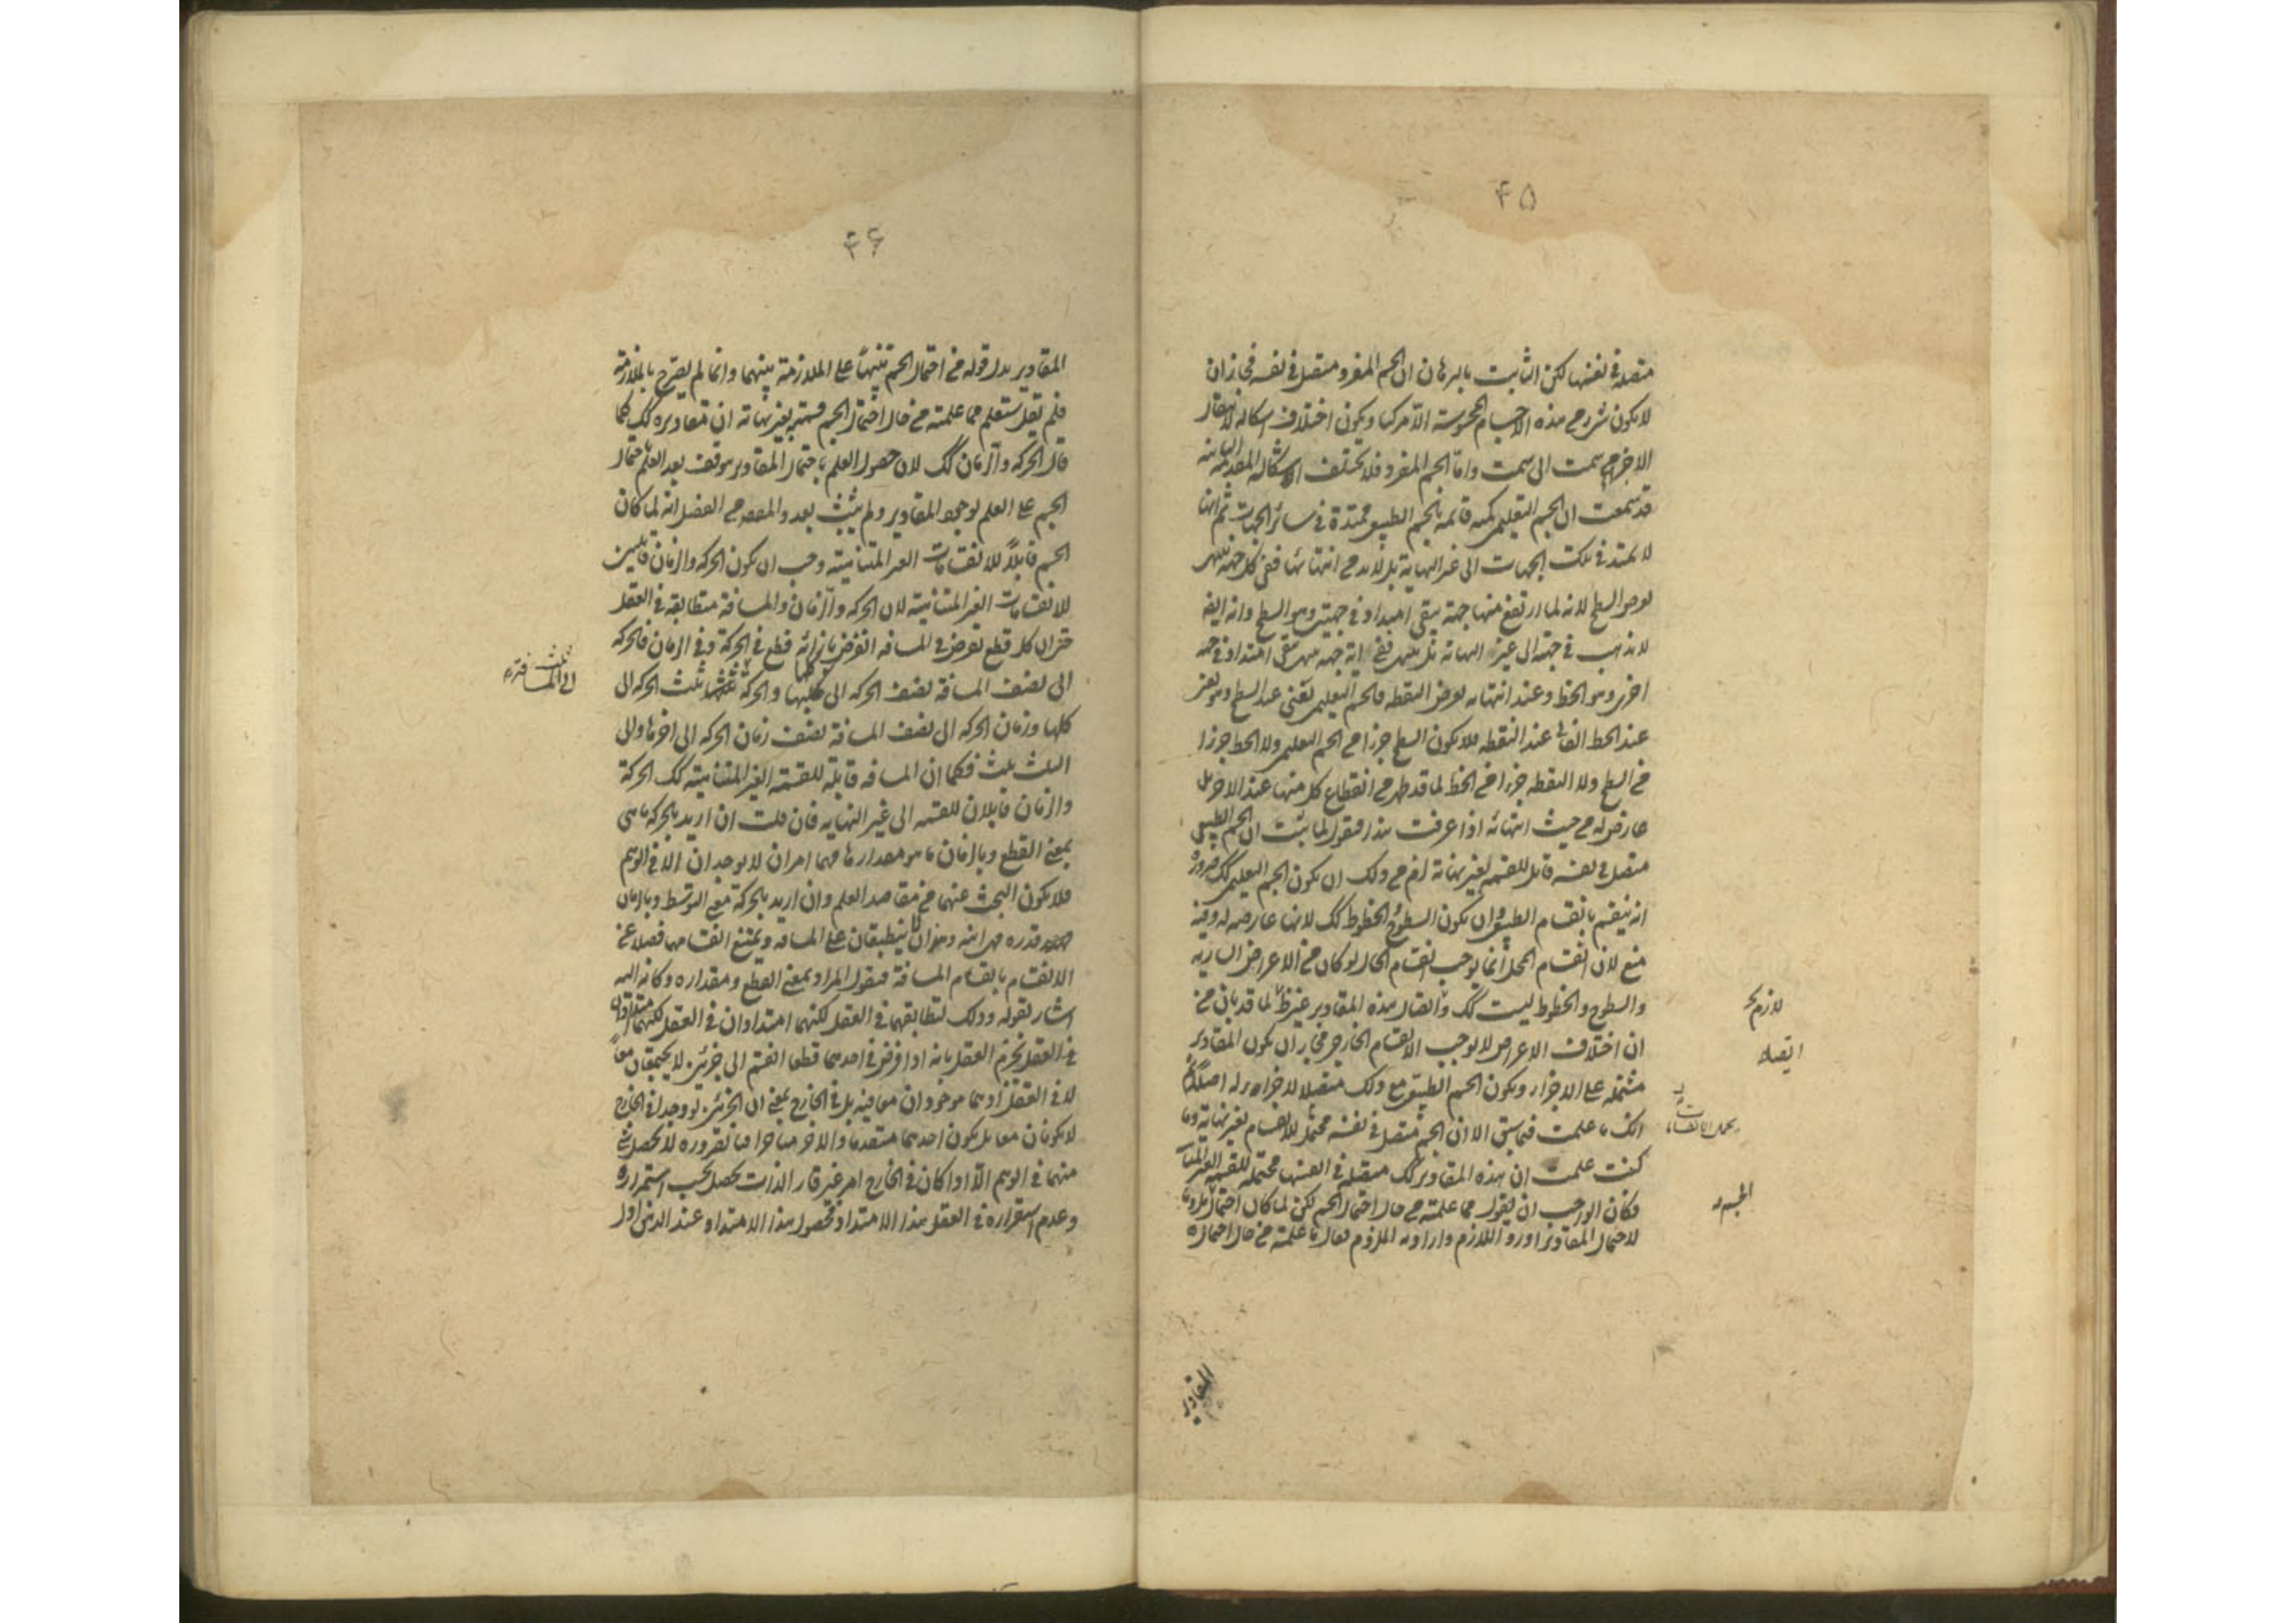 ۴۵
متصلة في نفسها لكن الثابت بالبرهان ان الجسم المفرد متصل في نفسه فجاز ان
لا يكون شئ من هذه الاجسام المحسوسة الا مركبا ويكون اختلاف اشكاله لانتقال
الاجزاء من سمت الى سمت واما الجسم المفرد فلا يختلف اشكاله
قد سمعت ان الجسم التعليمى كمية قائمة بالجسم الطبيعى ممتدة في سائر الجهات ثم انها
لا تمتد في تلك الجهات الى غير النهاية بل لا بد من انتهائها ففى كل جهة ينتهى
يعرض السطح لانه لما ارتفع منها جهة يبقى امتداد في جهتين وهو السطح وانه ايضا
لا يذهب في جهة الى غير النهاية بل ينتهى ففى اية جهة ينتهى يبقى امتداد في جهة
اخرى وهو الخط وعند انتهائه يعرض النقطة فالجسم التعليمى يفنى عند السطح وهو يفنى
عند الخط الفانى عند النقطة فلا يكون السطح جزءا من الجسم التعليمى ولا الخط جزءا
من السطح ولا النقطة جزءا من الخط لما قد ظهر من انقطاع كل منها عند الاخر بل
عارض له من حيث انتهائه اذا عرفت هذا فنقول لما ثبت ان الجسم الطبيعى
متصل في نفسه قابل للقسمة بغير نهاية لزم من ذلك ان يكون الجسم التعليمى كك ضرورة
انه ينقسم بانقسام الطبيعى وان يكون السطوح والخطوط كك لانها عارضة له وفيه
منع لان انقسام المحل انما يوجب انقسام الحال لو كان من الاعراض السارية
والسطوح والخطوط ليست كك واتصال هذه المقادير غير لما قد بان من
ان اختلاف الاعراض لا يوجب الانقسام الخارجى فجاز ان يكون المقادير
مشتملة على الاجزاء ويكون الجسم الطبيعى مع ذلك متصلا لا جزء له اصلا
انك ما علمت فيما سبق الا ان الجسم متصل في نفسه محتمل للانقسام بغير نهاية وما
كنت علمت ان هذه المقادير كك متصلة في انفسها محتملة للقسمة الغير
فكان الواجب ان يقول مما علمته من حال احتمال الجسم لكن لما كان احتماله ملزوما
لاحتمال المقادير اورد اللازم واراد به الملزوم فقال ما علمته من حال احتمال
لازم
اتصال
الجسم
المقادير
۴۶
المقادير بدل قوله من احتمال الجسم تنبيها على الملازمة بينهما وانما لم يصرح بالملازمة
فلم يقل ستعلم مما علمته من حال احتمال الجسم قسمة بغير نهاية ان مقاديره كك كما
قال الحركة والزمان كك لان حصول العلم باحتمال المقادير موقوف بعد العلم باحتمال
الجسم على العلم بوجود المقادير ولم يثبت بعد والمقصود من الفصل انه لما كان
الجسم قابلا للانقسامات الغير المتناهية وجب ان يكون الحركة والزمان قابلين
للانقسامات الغير المتناهية لان الحركة والزمان والمسافة متطابقة في العقل
حتى ان كل قطع يعرض في المسافة انفرض بازائه قطع في الحركة وفى الزمان فالحركة
الى نصف المسافة نصف الحركة الى كلها والحركة ثلث الحركة الى
كلها وزمان الحركة الى نصف المسافة نصف زمان الحركة الى اخرها والى
الثلث ثلث فكما ان المسافة قابلة للقسمة الغير المتناهية كك الحركة
والزمان قابلان للقسمة الى غير النهاية فان قلت ان اريد بالحركة ما هى
بمعنى القطع وبالزمان ما هو مقدارها فهما امران لا يوجدان الا في الوهم
فلا يكون البحث عنهما من مقاصد العلم وان اريد بالحركة معنى التوسط وبالزمان
قدره فهما لا ينطبقان على المسافة ويمتنع انقسامهما فضلا عن
الانقسام بانقسام المسافة فنقول المراد بمعنى القطع ومقداره وكانه اليه
اشار بقوله وذلك لتطابقهما في العقل لكنهما امتدادان في العقل لكنهما
في العقل يجزم العقل بانه اذا فرض في احدهما قطعا انقسم الى جزئين لا يجتمعان معا
لا في العقل اذ هما موجودان معا فيه بل في الخارج بمعنى ان الجزئين لو وجدا في الخارج
لا يكونان معا بل يكون احدهما متقدما والاخر متاخرا فما تقرره لا يحصل شئ
منهما في الوهم الا اذا كان في الخارج امر غير قار الذات يحصل بحسب استمراره
وعدم استقراره في العقل هذا الامتداد فحصول هذا الامتداد عند الذهن اول
ثلث
الى المسافة